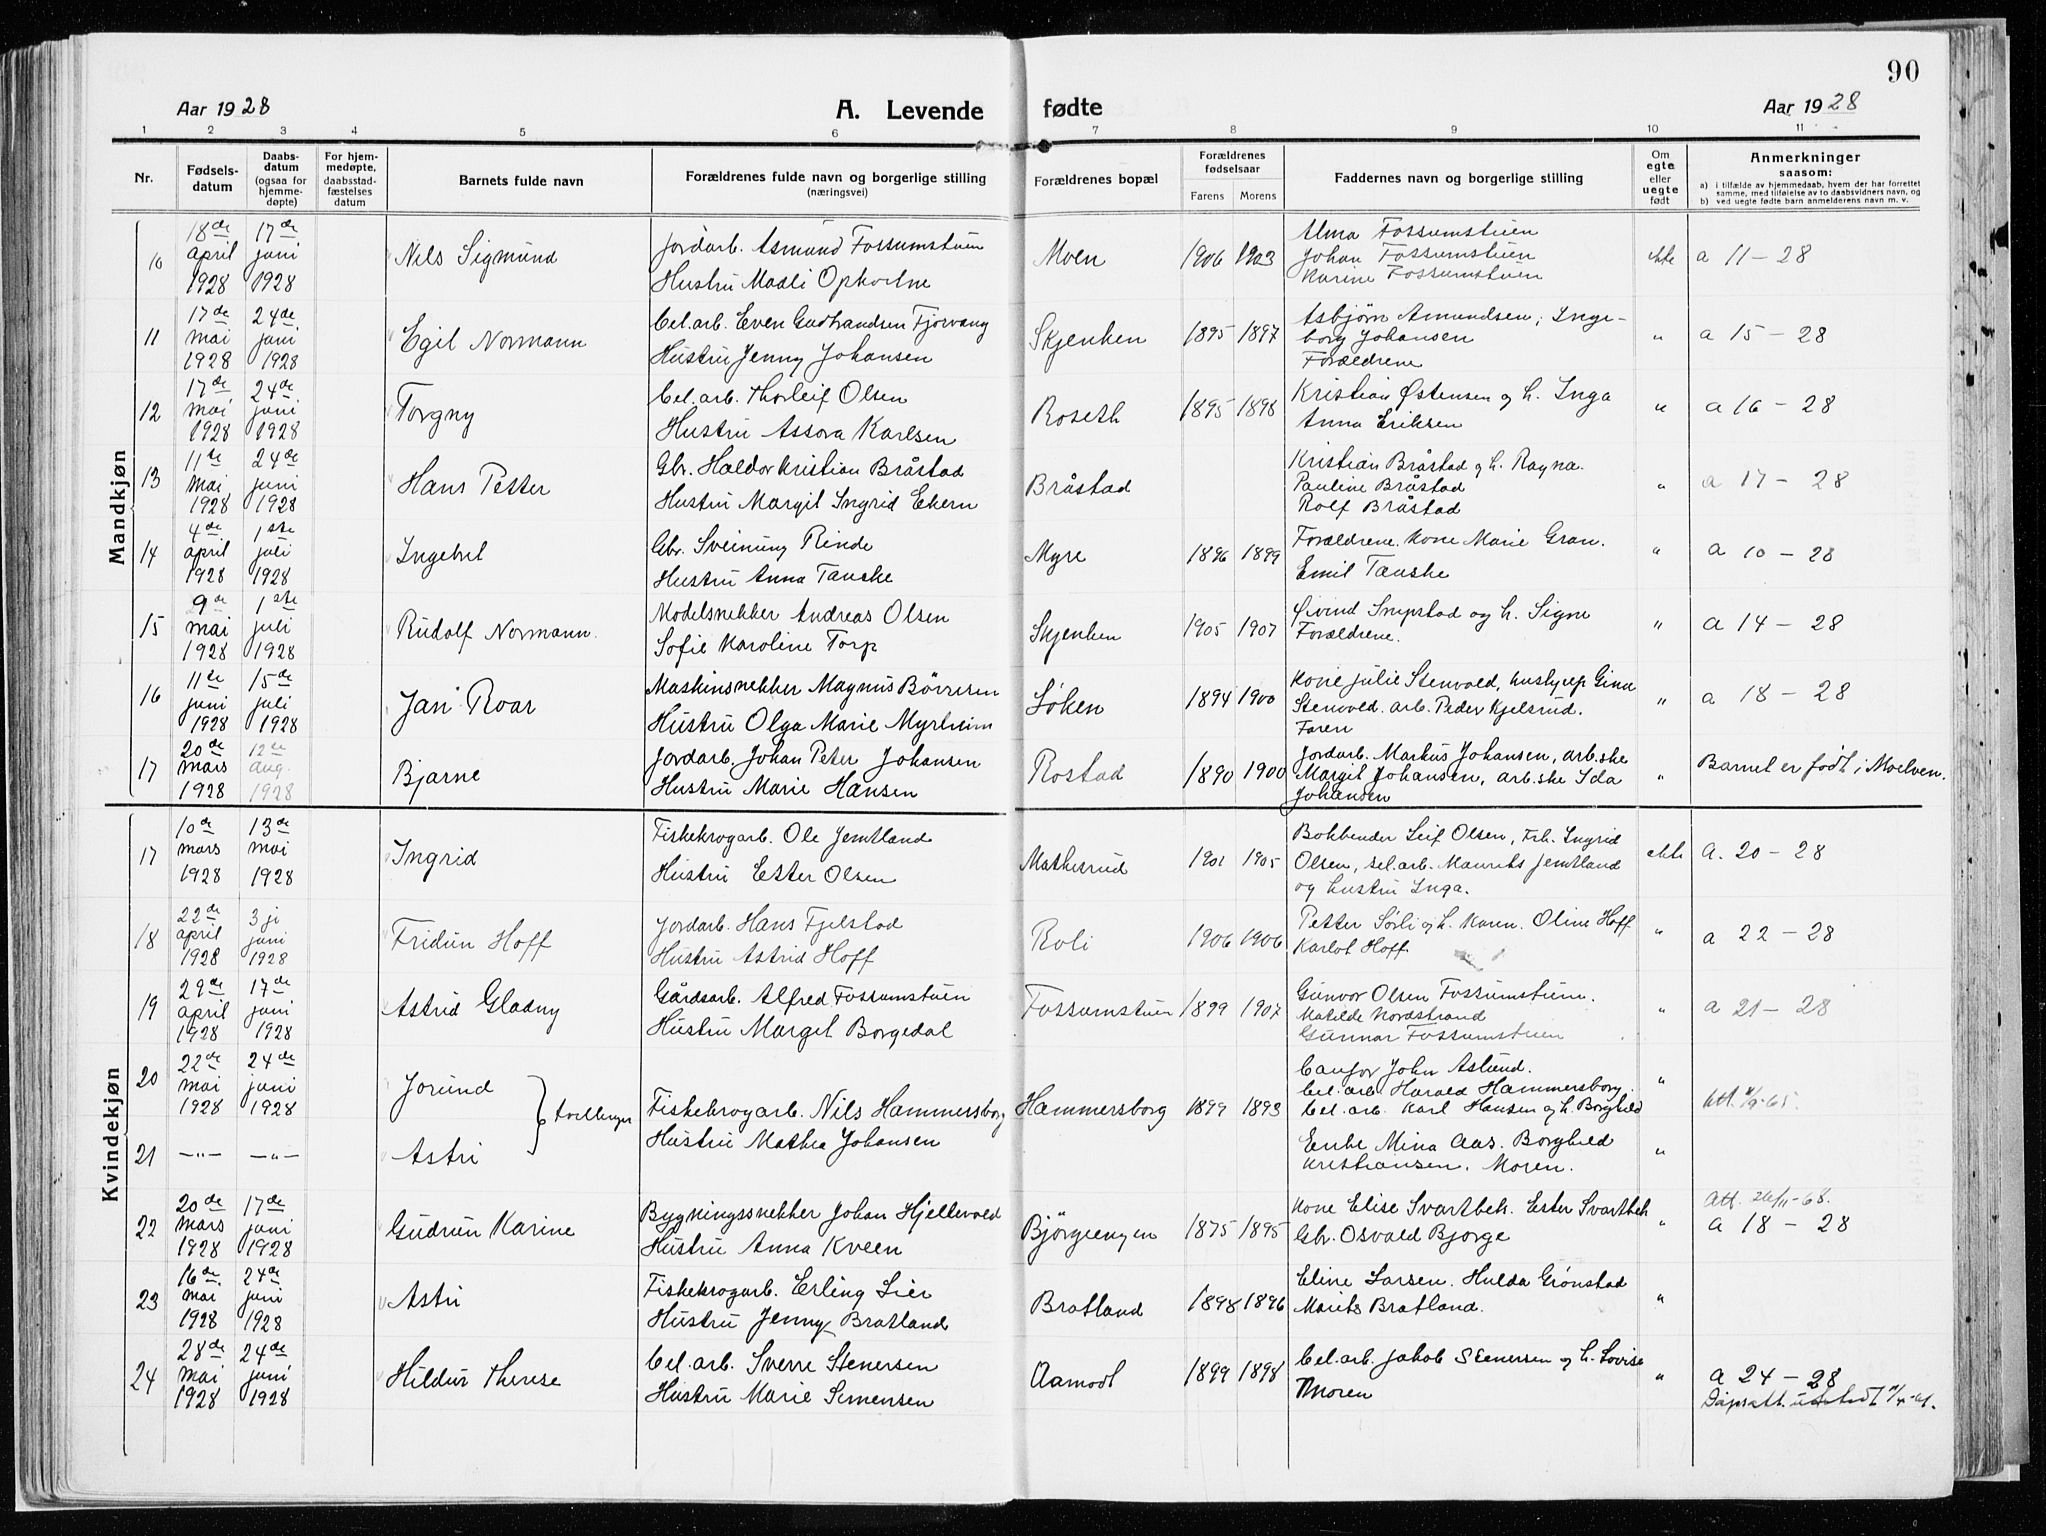 90
Aar 1928 A. Levende fødte Aar 1928
1 2 3 4 5 6 7 8 9 10 11
Nr.
Fødsels-
datum
Daabs-
datum
(ogsaa for
hjemme-
døpte)
For hjem-
medøpte,
daabsstad-
fæstelses
datum
Barnets fulde navn
Forældrenes fulde navn og borgerlige stilling
(næringsvei)
Forældrenes bopæl
Forældrenes
fødselsaar
Farens Morens
Faddernes navn og borgerlige stilling
Om
egte
eller
uegte
født
Anmerkninger
saasom:
a) i tilfælde av hjemmedaab, hvem der har forrettet
samme, med tilføielse av to daabsvidners navn, og
b) ved uegte fødte barn anmelderens navn m. v.
Mandkjøn
10
18de april 1928
17de juni 1928
Nils Sigmund
Jordarb. Asmund Fossumstuen
Hustru Madli Opkvitne
Moen
1906 1903
Alma Fossumstuen
Johan Fossumstuen
Karine Fossumstuen
ekte
a 11 - 28
11
17de mai 1928
24de juni 1928
Egil Normann
Cel. arb. Even Gudbrandsen Fjorvang
Hustru Jenny Johansen
Skjenken
1895 1897
Asbjørn Amundsen, Inge-
borg Johansen
Forældrene
"
a 15 - 28
12
17de mai 1928
24de juni 1928
Torgny
Cel. arb. Thorleif Olsen
Hustru Assora Karlsen
Roseth
1895 1898
Kristian Østensen og h. Inga
Anna Eriksen
"
a 16 - 28
13
11te mai 1928
24de juni 1928
Hans Petter
Gbr. Haldor Kristian Bråstad
Hustru Margit Ingrid Ekern
Bråstad
Kristian Bråstad og h. Ragna.
Pauline Bråstad
Rolf Bråstad
"
a 17 - 28
14
4de april 1928
1ste juli 1928
Ingebret
Gbr. Sveinung Rinde
Hustru Anna Tanske
Myre
1896 1899
Forældrene. Kone Marie Gran.
Emil Tanske
"
a 10 - 28
15
9de mai 1928
1ste juli 1928
Rudolf Normann.
Modelsnekker Andreas Olsen
Sofie Karoline Torp
Skjenken
1905 1907
Øivind Snipstad og h. Signe
Forældrene.
"
a 14 - 28
16
11te juni 1928
15de juli 1928
Jan Roar
Maskinsnekker Magnus Børresen
Hustru Olga Marie Myrheim
Løken
1894 1900
Kone Julie Stenvold, huslærer Gina
Stenvold. arb. Peder Kjelsrud.
Faren
"
a 18 - 28
17
20de mars 1928
12te aug. 1928
Bjarne
Jordarb. Johan Peter Johansen
Hustru Marie Hansen
Rostad
1890 1900
Jordarb. Markus Johansen, arb.ske
Margit Johansen, arb.ske Ida
Johansen
"
Barnet er født i Moelven.
Kvindekjøn
17
10de mars 1928
13de mai 1928
Ingrid
Fiskekrogarb. Ole Jemtland
Hustru Ester Olsen
Matkisrud
1901 1905
Bokbinder Leif Olsen, Frk. Ingrid
Olsen, cel. arb. Maurits Jemtland
og hustru Inga.
ekte
a. 20 - 28
18
22de april 1928
3ji juni 1928
Fridun Hoff
Jordarb. Hans Fjelstad
Hustru Astrid Hoff
Roli
1906 1906
Petter Sørli og h. Karen. Oline Hoff
Karlot Hoff
"
a 22 - 28
19
29de april 1928
17de juni 1928
Astrid Gladny
Gårdsarb. Alfred Fossumstuen
Hustru Margit Borgedal
Fossumstuen
1899 1907
Gunvor Olsen Fossumstuen.
Matilde Nordstrand
Gunnar Fossumstuen
"
a 21 - 28
20
22de mai 1928
24de juni 1928
Jorund
tvillinger
Fiskekrogarb. Nils Hammersborg
Hustru Mathea Johansen
Hammersborg
1899 1893
Cand. John Aslund.
Cel. arb. Harald Hammersborg.
Cel. arb. Karl Hansen og h. Borghild
"
Att. 4/9-65.
21
-"- -"-
Astri
Enke Mina Aas. Borghild
Kristiansen. Moren.
"
22
20de mars 1928
17de juni 1928
Gudrun Karine
Bygningssnekker Johan Hjellevold
Hustru Anna Kveen
Bjørgeengen
1875 1895
Kone Elise Svartbek. Ester Svartbek
Gbr. Osvald Bjørge
"
Att. 26/11-68.
a 18 - 28
23
16de mai 1928
24de juni 1928
Astri
Fiskekrogarb. Erling Lier
Hustru Jenny Bratland
Bratland
1898 1896
Eline Larsen. Hulda Grønstad
Marits Bratland.
"
24
28de mai 1928
24de juni 1928
Hildur Therese
Cel. arb. Sverre Stenersen
Hustru Marie Simensen
Aamodt
1899 1898
Cel. arb. Jakob Stenersen og h. Lovise
Moren
"
a 24 - 28
Dåpsatt. utstedt